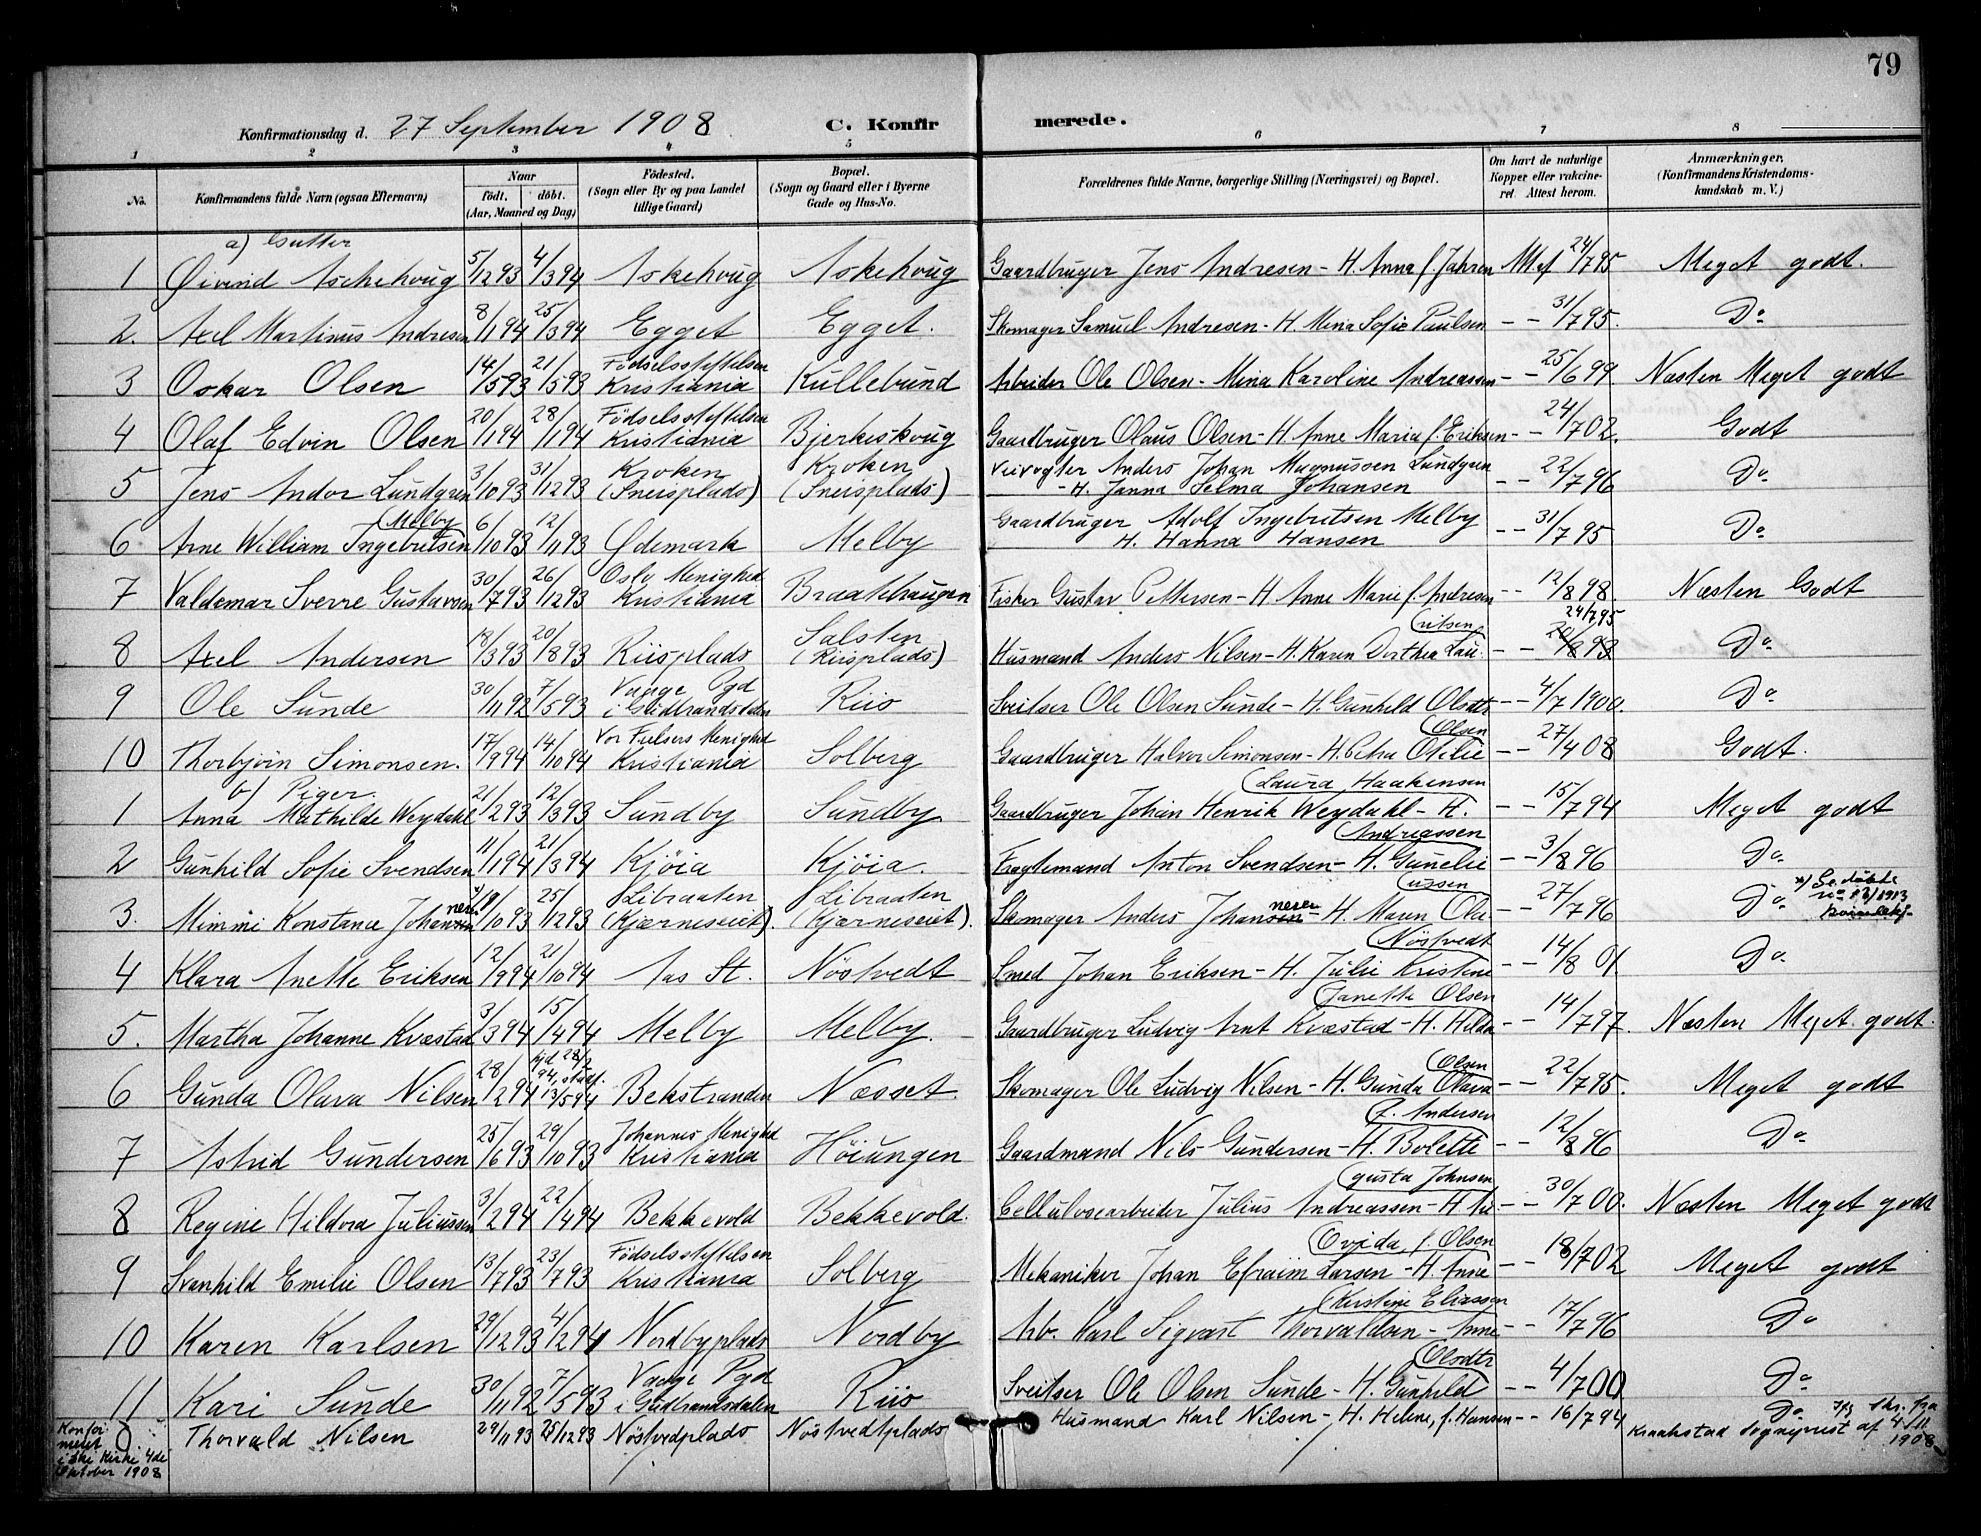 79
Konfirmationsdag d. 27 September 1908 C. Konfirmerede.
1 2 3 4 5 6 7 8
No. Konfirmandens fulde Navn (ogsaa Efternavn) Naar födt. döbt. (Aar, Maaned og Dag) Födested. (Sogn eller By og paa Landet tillige Gaard) Bopæl. (Sogn og Gaard eller i Byerne Gade og Hus-No. Forældrenes fulde Navne, borgerlige Stilling (Næringsvei) og Bopæl. Om havt de naturlige Kopper eller vakcineret. Attest herom. Anmærkninger. (Konfirmandens Kristendomskundskab m. V.)
a) Gutter
1 Øivind Aschehoug 5/12 93 4/3 94 Askehoug Askehoug Gaardbruger Jens Andresen - H. Anna f. Jahren Mef 24/7 95 Meget godt.
2. Axel Martinus Andresen 8/1 94 25/3 94 Egget Egget. Skomager Samuel Andresen - H. Mina Sofie Paulsen - - 31/7 95. Do
3 Oskar Olsen 14/5 93 21/5 93 Födselsstiftelsen Kristiania Kullebund Arbeider Ole Olsen - Mina Karoline Andreassen - - 25/6 99 Næsten Meget godt
4 Olaf Edvin Olsen 20/1 94 28/1 94 Födselsstiftelsen Kristiania Bjerkeskoug Gaardbruger Olaus Olsen - H. Anne Maria f. Eriksen - - 24/7 02. Godt
5 Jens Andor Lundgren 3/10 93 31/12 93 Kroken (Sneisplads) Kroken (Sneisplads) Veivogter Anders Johan Magnussen Lundgren - H. Janna Selma Johansen - - 22/7 96 Do
6 Arne William Ingebretsen (Melby 6/10 93 12/11 93 Ødemark Melby Gaardbruger Adolf Ingebretsen Melby H. Hanna Hansen - - 31/7 95 Do
7 Valdemar Sverre Gustavsen 30/7 93 26/12 93 Oslo Menighed Kristiania Braatehaugen Fisker Gustav Pettersen - H Anne Marie f. Andresen - - 12/8 98. Næsten Godt
8 Axel Andersen 18/3 93 20/8 93 Riisplads Salsten (Riisplads) Husmand Anders Nilsen - H. Karen Dorthea Lau (ritsen - - 24/7 95 Do
9 Ole Sunde 30/11 92 7/5 93 Vaage Pgd i Gudbrandsdalen Riis Sveitser Ole Olsen Sunde - H. Gunhild Olsdtr - - 4/7 1900. Do
10 Thorbjörn Simonsen. 17/9 94 14/10 94 Vor Frelsers Menighed Kristiania Solberg Gaardbruger Halvor Simonsen - H. Petra Otilie (Olsen - - 27/4 08 Godt.
b) Piger.
1 Anna Mathilde Weydahl 21/2 93 12/3 93 Sundby Sundby Gaardbruger Johan Henrik Weydahl - H. (Laura Haakensen - - 15/7 94 Meget godt
2 Gunhild Sofie Svendsen 11/1 94 21/3 94 Kjöia Kjöia. Fragtemand Anton Svendsen - H. Gunelie (Andreassen - - 3/8 96 Do
3. Mimmi Konstance Johannesen 19/10 93 25/12 93 Libraaten (Kjærneseiet) Libraaten (Kjærneseiet). Skomager Anders Johannesen - H. Maren Ola (ussen - - 27/7 96 Do *) Se döbte no 12/1913
4 Klara Anette Eriksen 12/9 94 21/10 94 Aas St. Nöstvedt Smed Johan Eriksen - H. Julie Kristine (Nöstvedt - - 14/8 01. Do
5. Martha Johanne Kvæstad 3/3 94 15/4 94 Melby Melby. Gaardbruger Ludvig Arnt Kvæstad - H. Hilda (Janette Olsen - - 14/7 97. Næsten Meget godt.
6 Gunda Olava Nilsen 28/2 94 hjd 28/2 94, stadf. 13/5 94 Bekstranden Næsset. Skomager Ole Ludvig Nilsen - H. Gunda Olava (Olsen - - 22/7 95. Meget godt
7 Astrid Gundersen 25/6 93 29/10 93 Johannes Menighed Kristiania Höiungen Gaardmand Nils Gundersen - H. Bolette (f. Andersen - - 12/8 96 Do
8 Regine Hildora Juliussen 3/2 94 22/4 94 Bekkevold Bekkevold. Cellulosearbeider Julius Andreassen - H Au (gusta Johnsen - - 30/7 00. Næsten Meget godt
9 Svanhild Emilie Olsen 13/7 93 23/7 93 Födselsstiftelsen Kristiania Solberg Mekaniker Johan Efraim Larsen - H. Anne (Ovida f. Olsen - - 18/7 02 Meget godt
10 Karen Karlsen 29/12 93 4/2 94 Nordbyplads Nordby Arb. Karl Sigvart Thorvaldsen - Anne (Kirstine Eliassen - - 17/7 96 Do
11 Kari Sunde 30/11 92 7/5 93 Vaage Pgd i Gudbrandsdalen Riis Sveitser Ole Olsen Sunde - H. Gunhild (Olsdtr - - 4/7 00 Do
Konfirmeret i Ski Kirke 4de Oktober 1908 Thorvald Nilsen 29/11 93 25/12 93 Nöstvedplads Nöstvedtplads Husmand Karl Nilsen - H. Helene, f. Hansen - - 16/7 94 Do Ifg Skr. fra Kraakstad Sogneprest af 4/11 1908.